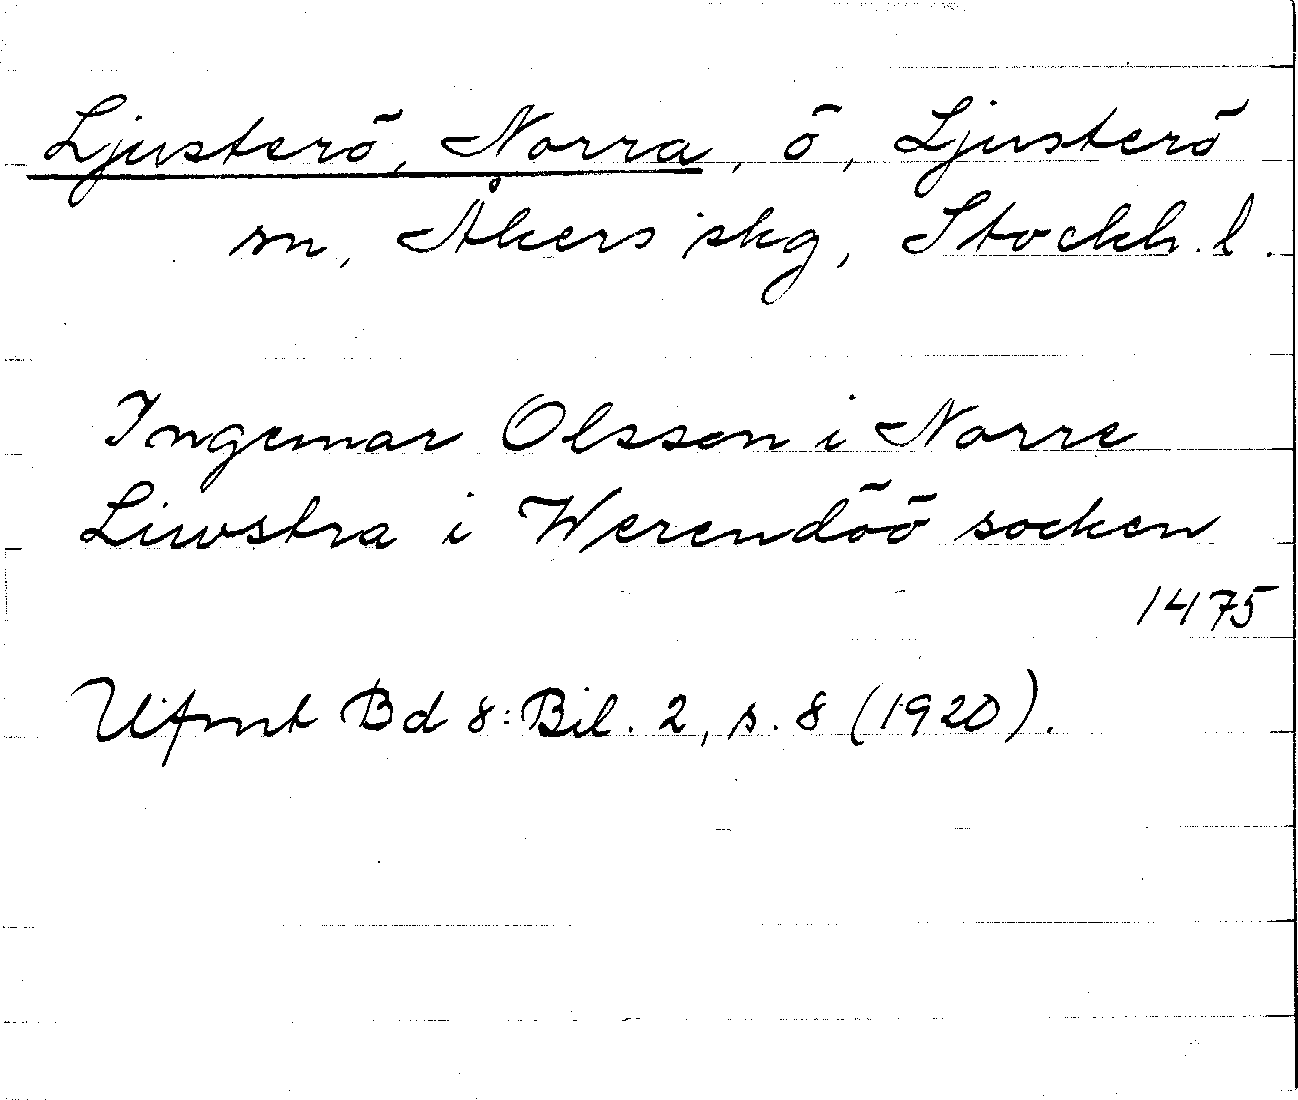 Ljusterö, Norra, ö, Ljusterö
sn, Åkers skg, Stockh. l.
Ingemar Olsson i Norre
Liwstra i Werendöö socken
1475
Ufmt Bd 8: Bil. 2, s. 8 (1920).